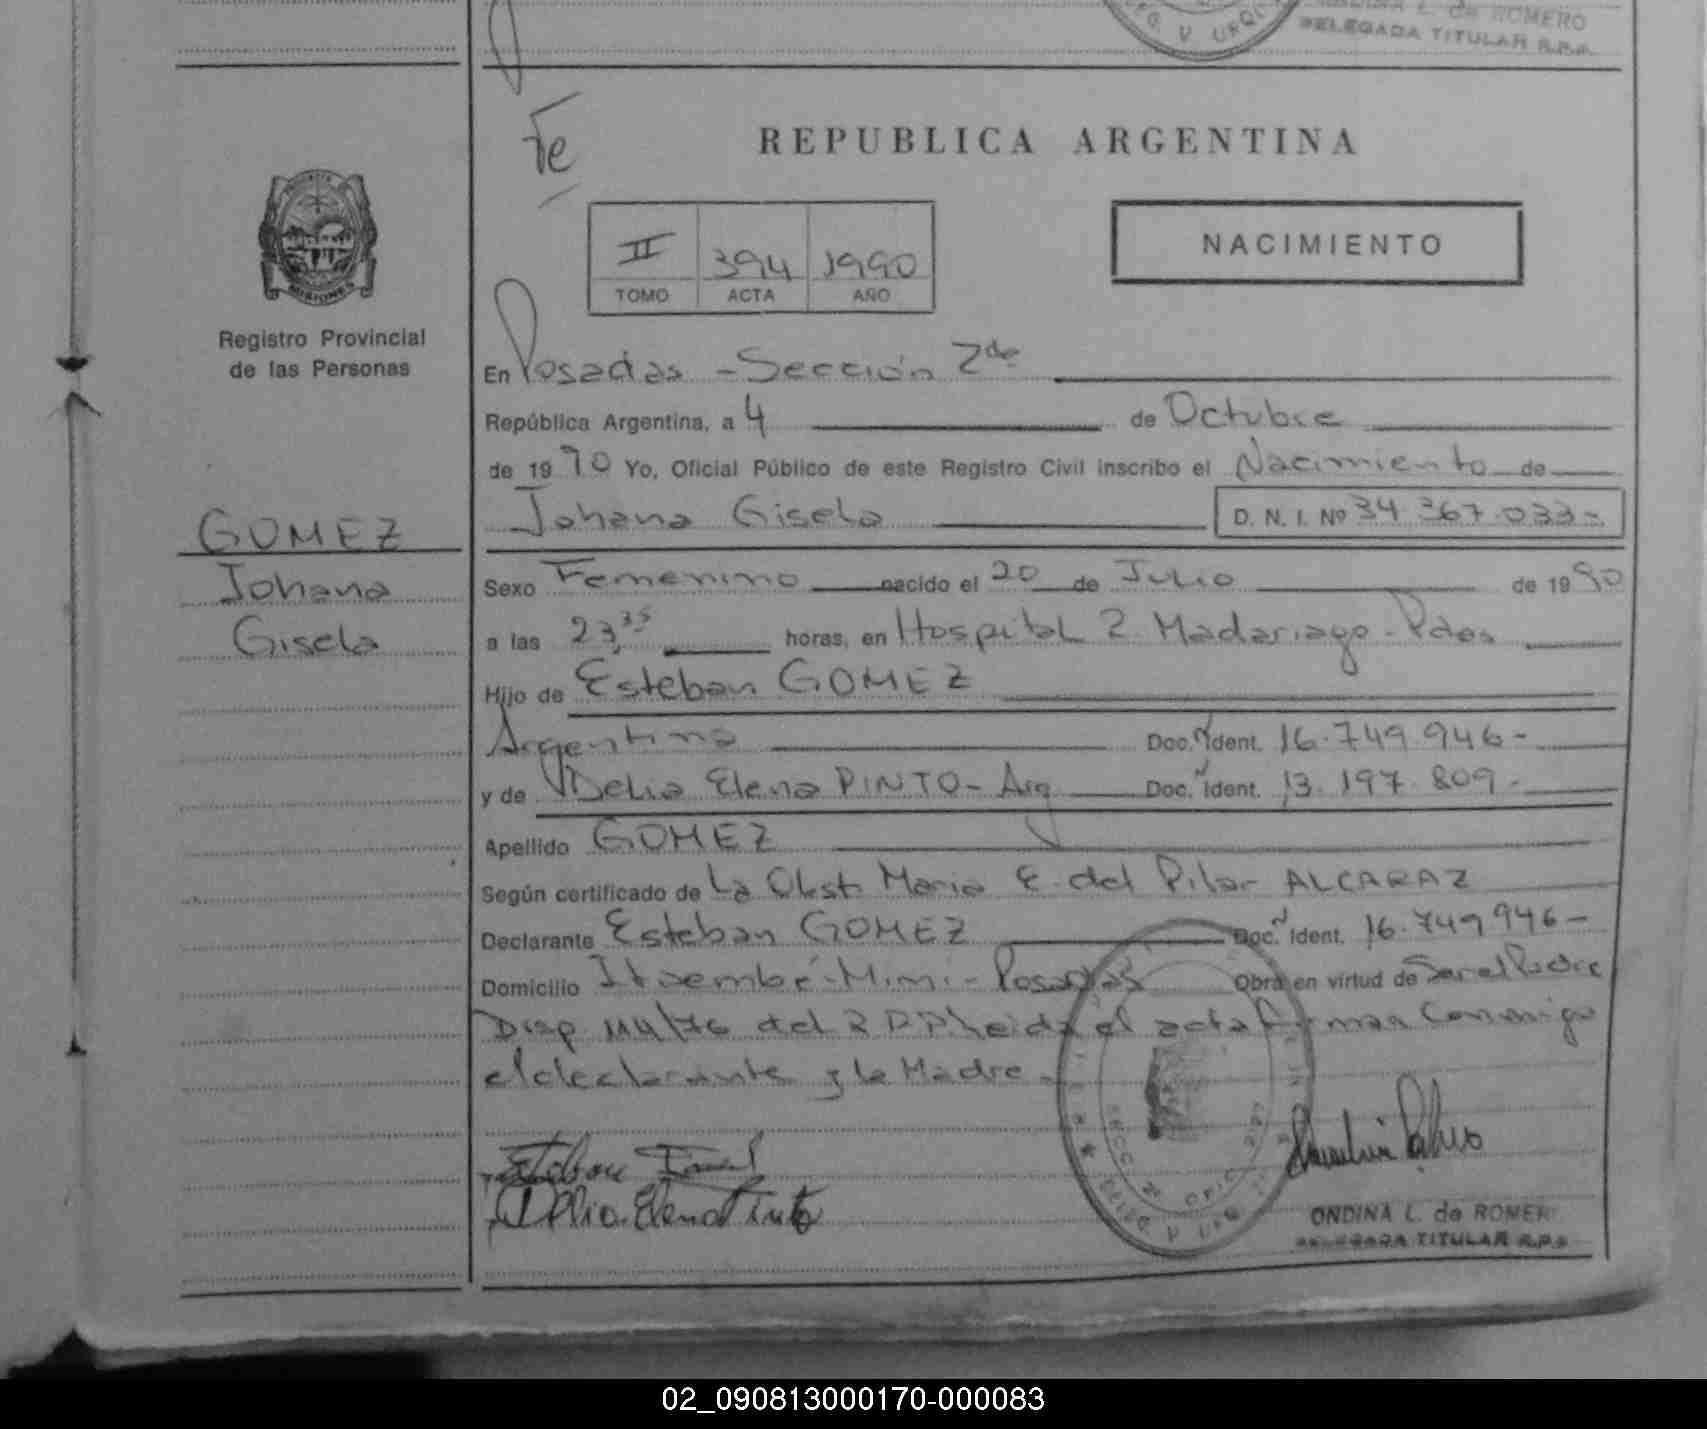 L. de ROMERO
DELEGADA TITULAR R.P.P.
Fe
REPUBLICA ARGENTINA
NACIMIENTO
II 394 1990
TOMO ACTA AÑO
MISIONES
Registro Provincial
de las Personas
En Posadas - Sección 2da
República Argentina, a 4 de Octubre
de 1990 Yo, Oficial Público de este Registro Civil inscribo el Nacimiento de
Johana Gisela D. N. I. Nº 34.367.033-
GOMEZ
Johana
Gisela
Sexo Femenino nacido el 20 de Julio de 1990
a las 23,35 horas, en Hospital R. Madariaga - Pdas
Hijo de Esteban GOMEZ
Argentino Doc. Ident. 16.749.946-
y de Delia Elena PINTO - Arg Doc. Ident. 13.197.809-
Apellido GOMEZ
Según certificado de La Obst. Maria E. del Pilar ALCARAZ
Declarante Esteban GOMEZ Doc. Ident. 16.749.946-
Domicilio Itaembé-Mini - Posadas Obra en virtud de Ser el Padre
Disp. 114/76 del R.P.P. leida el acta firman Conmigo
el declarante y la Madre -
Esteban
Delia Elena Pinto
ONDINA L. de ROMERO
DELEGADA TITULAR R.P.P.
02_090813000170-000083